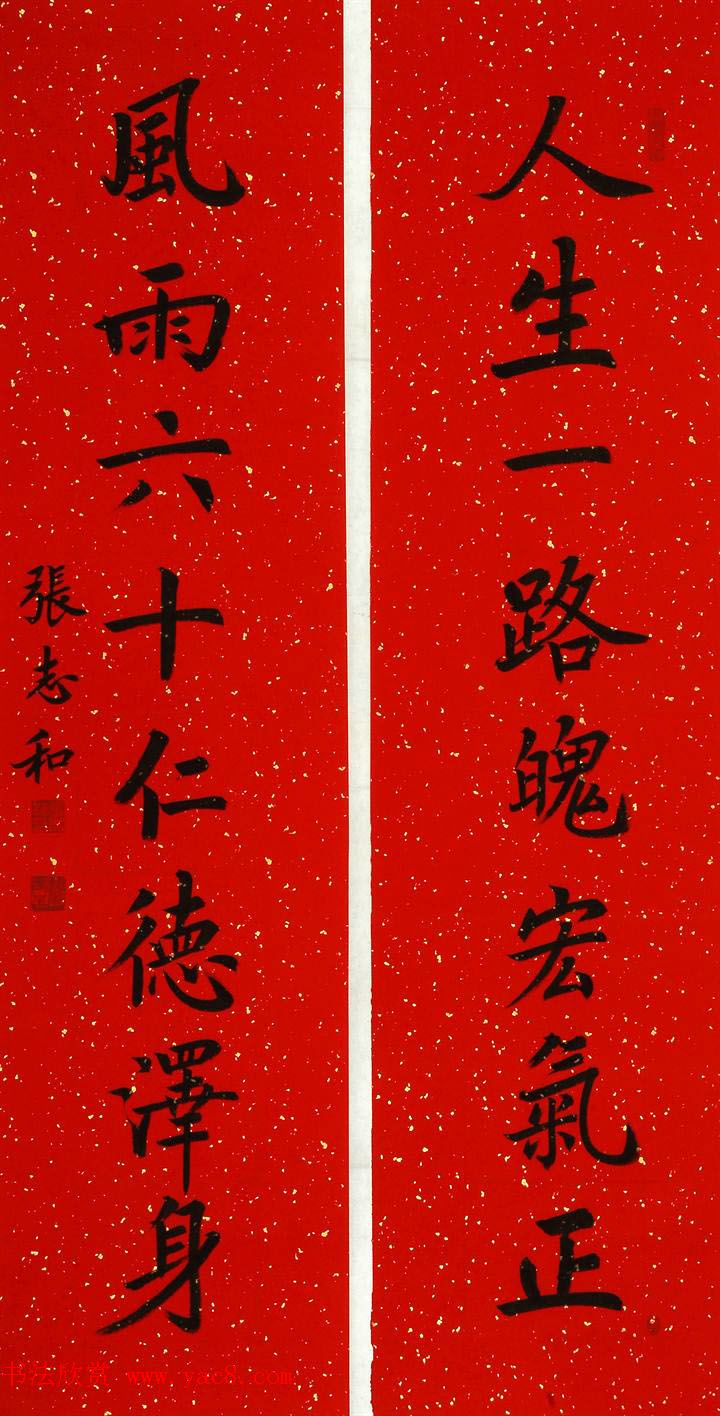 人生一路魄宏氣正
風雨六十仁德澤身
張志和
书法欣赏 www.yac8.com